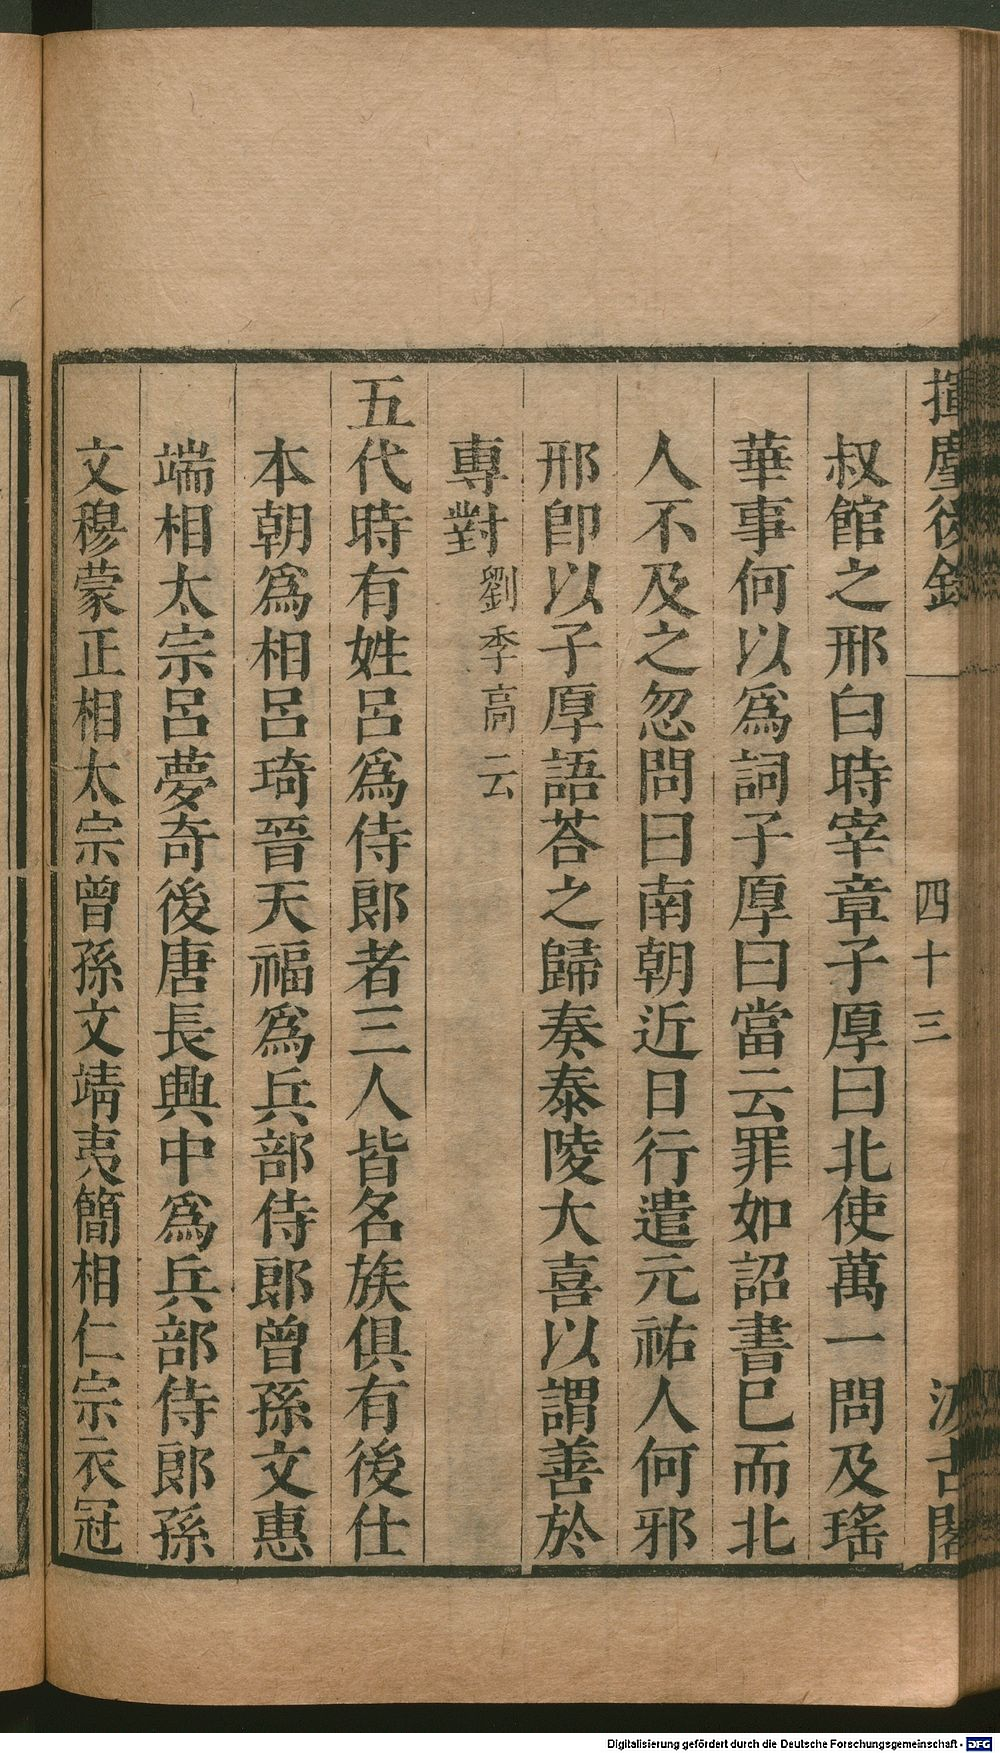 揮麈後錄
四十三
汲古閣
叔館之邢白時宰章子厚曰北使萬一問及瑤
華事何以爲詞子厚曰當云罪如詔書巳而北
人不及之忽問曰南朝近日行遣元祐人何邪
邢卽以子厚語荅之歸奏泰陵大喜以謂善於
專對劉季高云
五代時有姓呂爲侍郎者三人皆名族俱有後仕
本朝爲相呂琦晉天福爲兵部侍郎曾孫文惠
端相太宗呂夢奇後唐長興中爲兵部侍郎孫
文穆蒙正相太宗曾孫文靖夷簡相仁宗衣冠
Digitalisierung gefördert durch die Deutsche Forschungsgemeinschaft - DFG